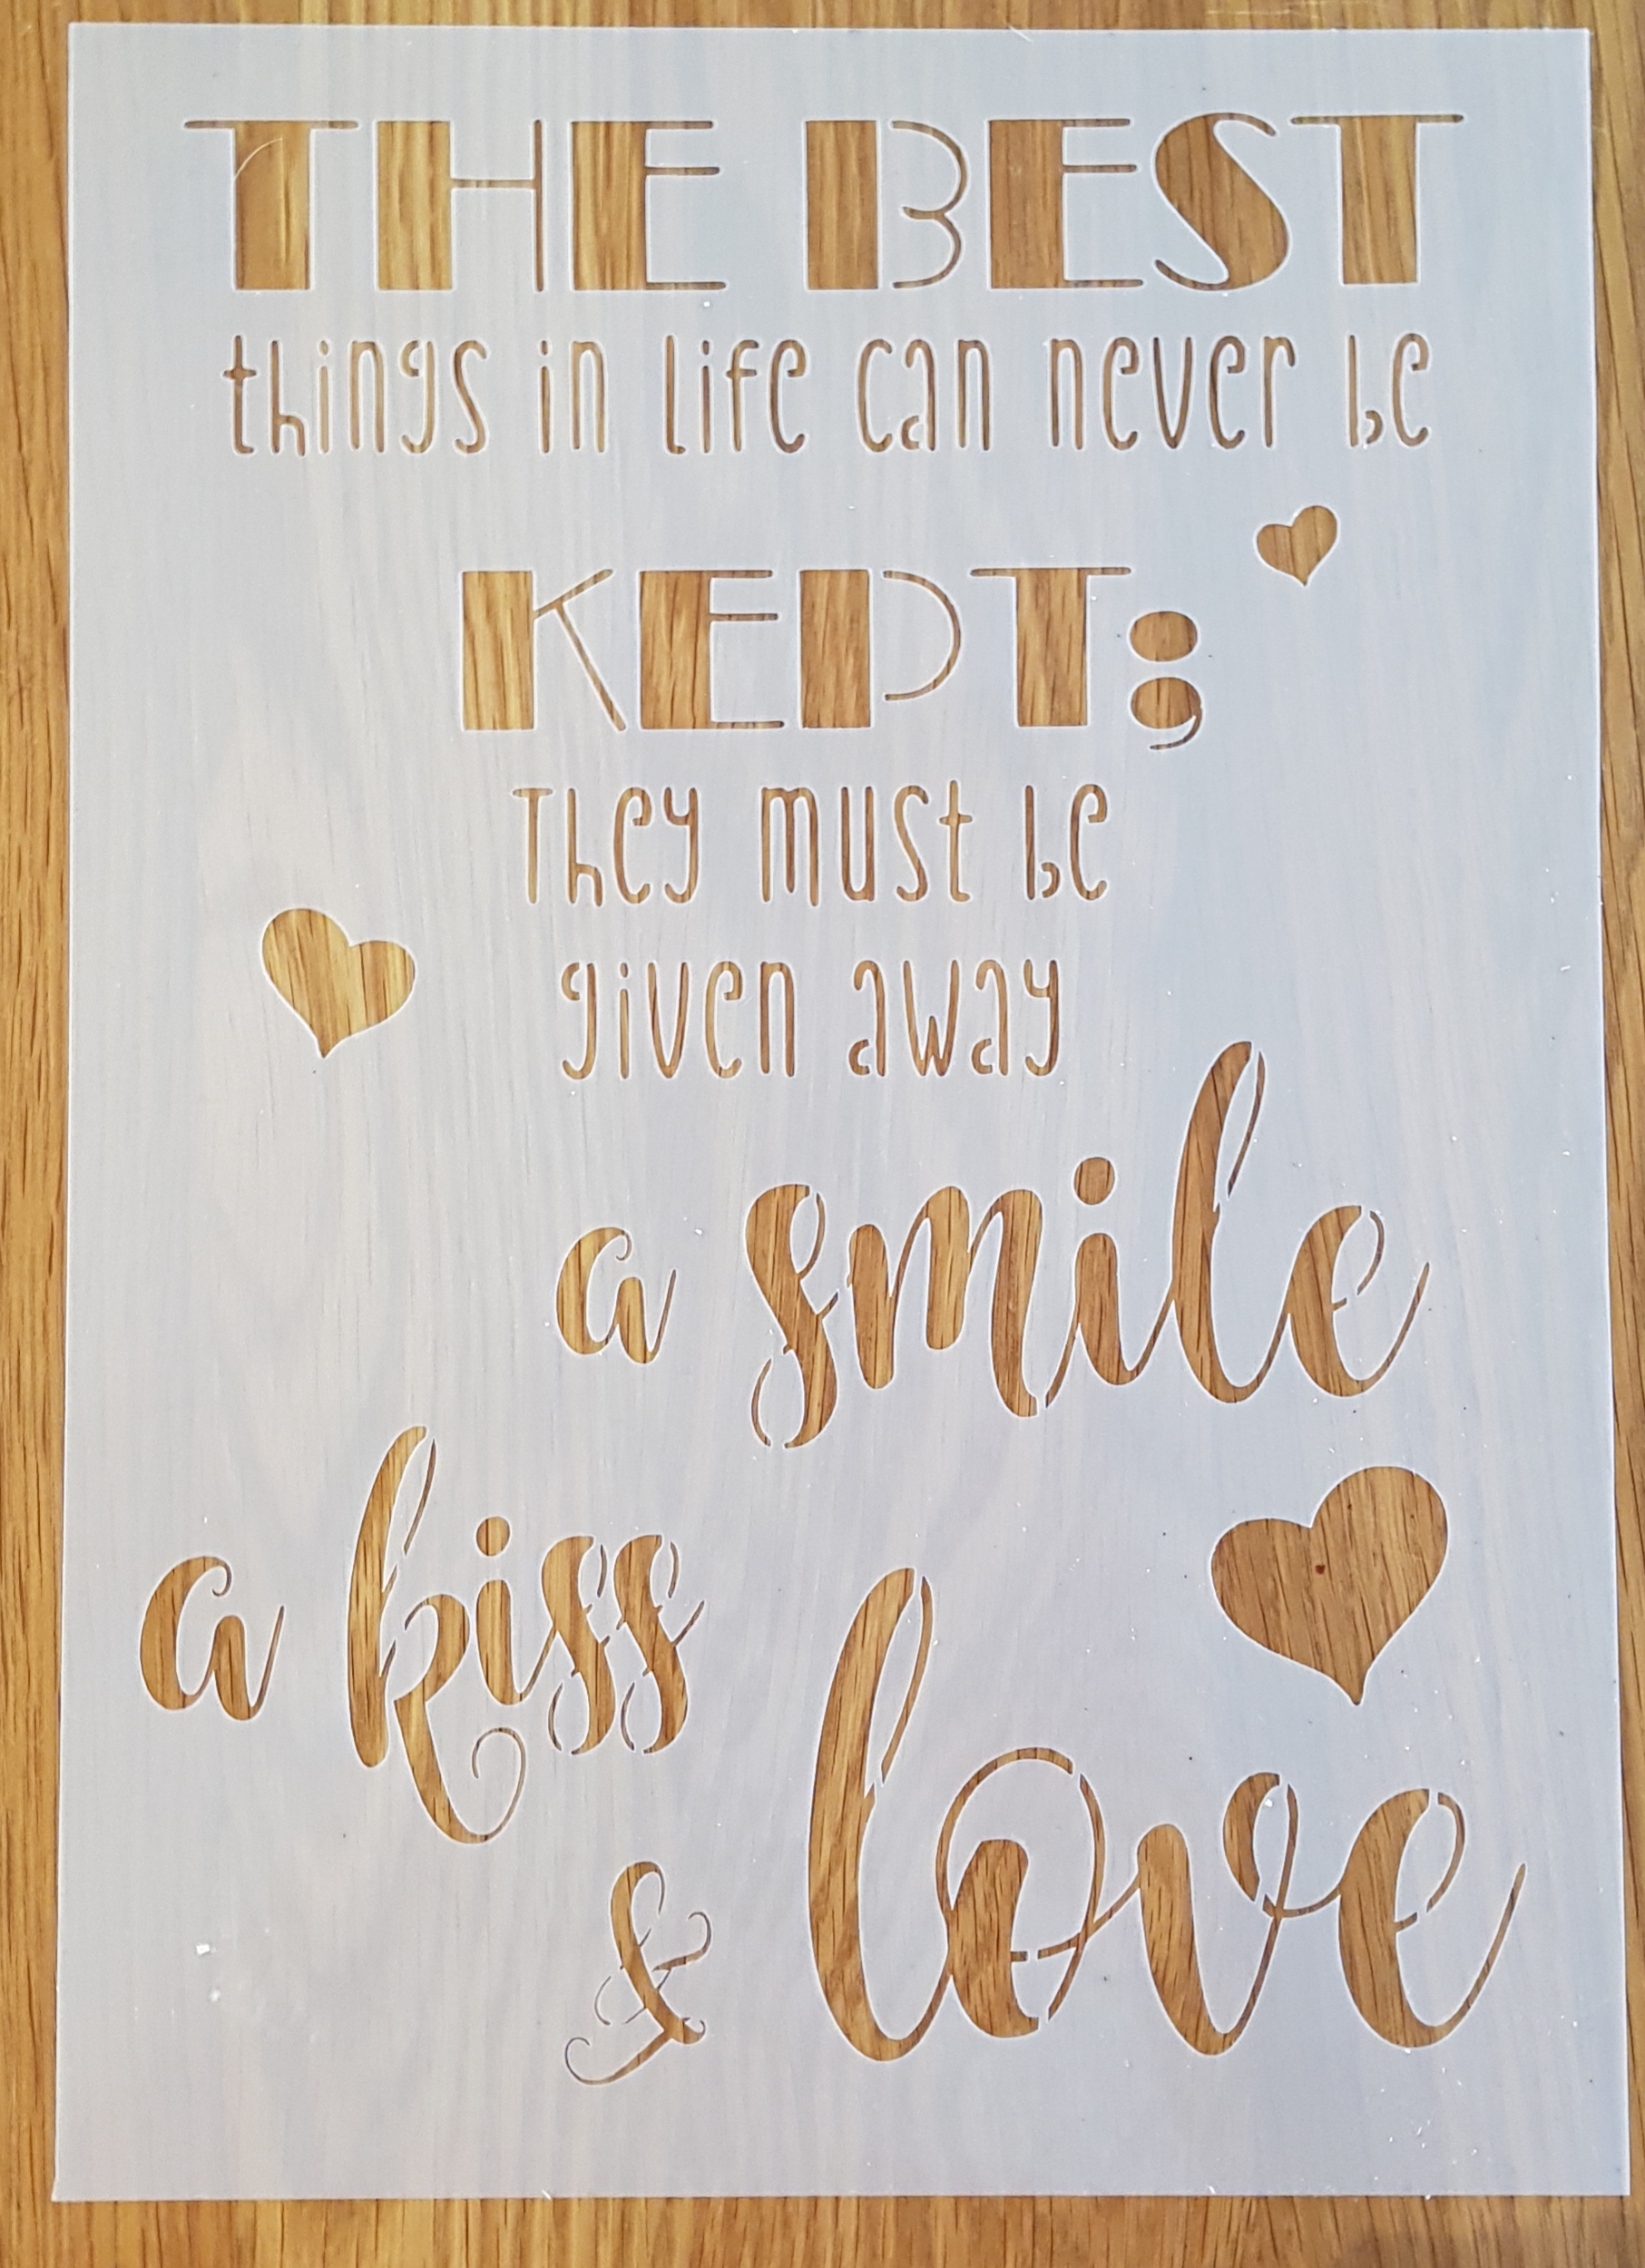 THE BEST
things in life can never be
KEPT;
They must be
given away
a smile
a kiss
& love